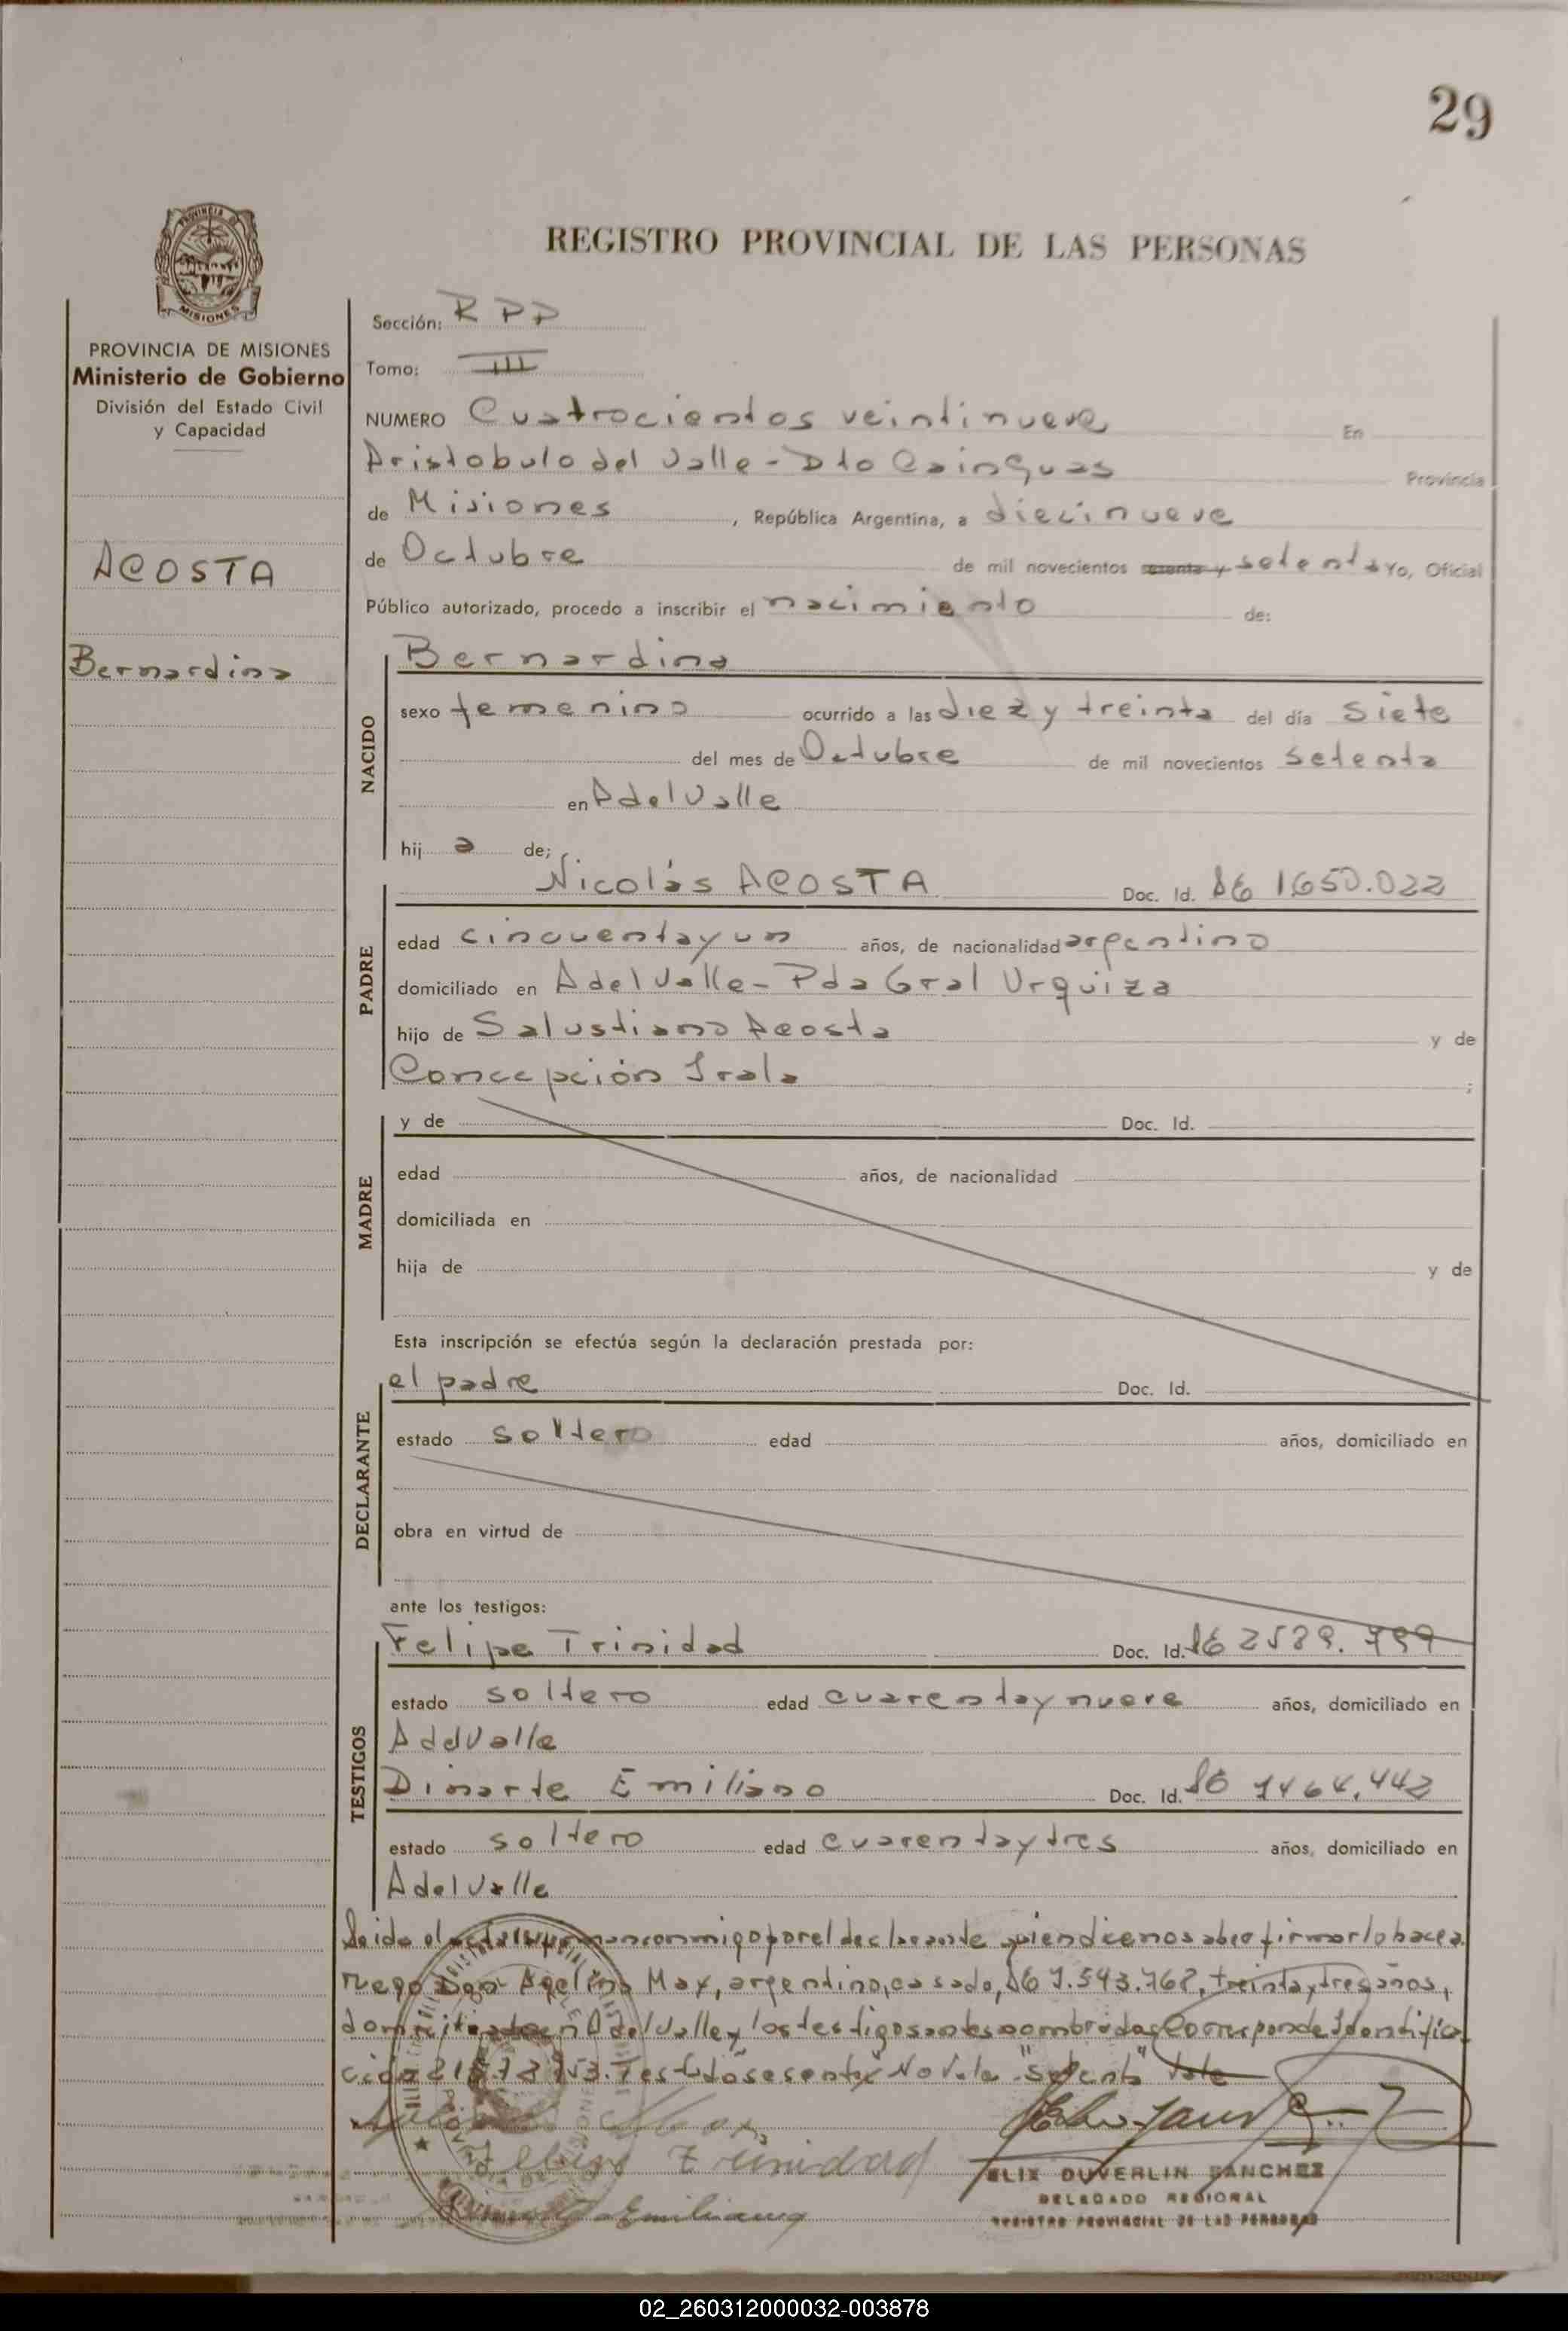 29
PROVINCIA DE MISIONES
Ministerio de Gobierno
División del Estado Civil
y Capacidad
ACOSTA
Bernardina
REGISTRO PROVINCIAL DE LAS PERSONAS
Sección: R P P
Tomo: III
NUMERO Cuatrocientos veintinueve En
Aristobulo del Valle - Dto Cainguas Provincia
de Misiones, República Argentina, a diecinueve
de Octubre de mil novecientos setenta Yo, Oficial
Público autorizado, procedo a inscribir el nacimiento de:
NACIDO
Bernardina
sexo femenino ocurrido a las diez y treinta del día siete
del mes de Octubre de mil novecientos setenta
en A del Valle
hij a de;
PADRE
Nicolás ACOSTA Doc. Id. 1.650.022
edad cincuenta y un años, de nacionalidad argentino
domiciliado en A del Valle - Pda Gral Urquiza
hijo de Salustiano Acosta y de
Concepción Irala ;
MADRE
y de Doc. Id.
edad años, de nacionalidad
domiciliada en
hija de y de
Esta inscripción se efectúa según la declaración prestada por:
DECLARANTE
el padre Doc. Id.
estado soltero edad años, domiciliado en
obra en virtud de
ante los testigos:
TESTIGOS
Felipe Trinidad Doc. Id.
estado soltero edad cuarenta y nueve años, domiciliado en
A del Valle
Dinarte Emiliano Doc. Id.
estado soltero edad cuarenta y tres años, domiciliado en
A del Valle
conmigo por el declarante quien dice no saber firmar lo hace a
ruego Don Max, argentino, casado, treinta y tres años,
domiciliado en A del Valle y los testigos antes nombrados Corresponde Identifica-
Testado sesenta No Vale
Trinidad
Emiliano
ELIX DUVERLIN SANCHEZ
DELEGADO REGIONAL
REGISTRO PROVINCIAL DE LAS PERSONAS
02_260312000032-003878